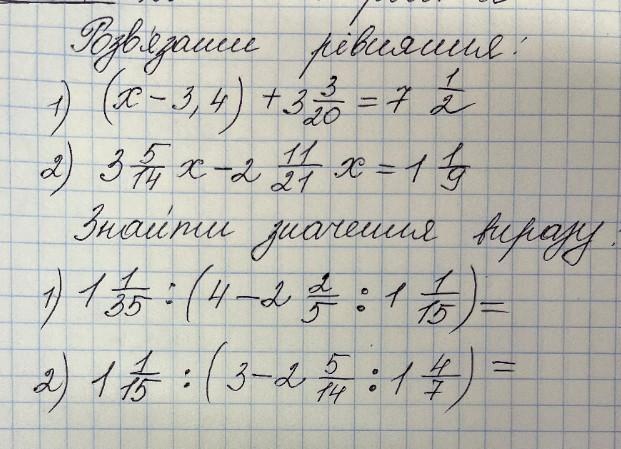 Розв'язати рівняння:
1) (x - 3,4) + 3 3/20 = 7 1/2
2) 3 5/14 x - 2 11/21 x = 1 1/9
Знайти значення виразу:
1) 1 1/35 : (4 - 2 2/5 : 1 1/15) =
2) 1 1/15 : (3 - 2 5/14 : 1 4/7) =